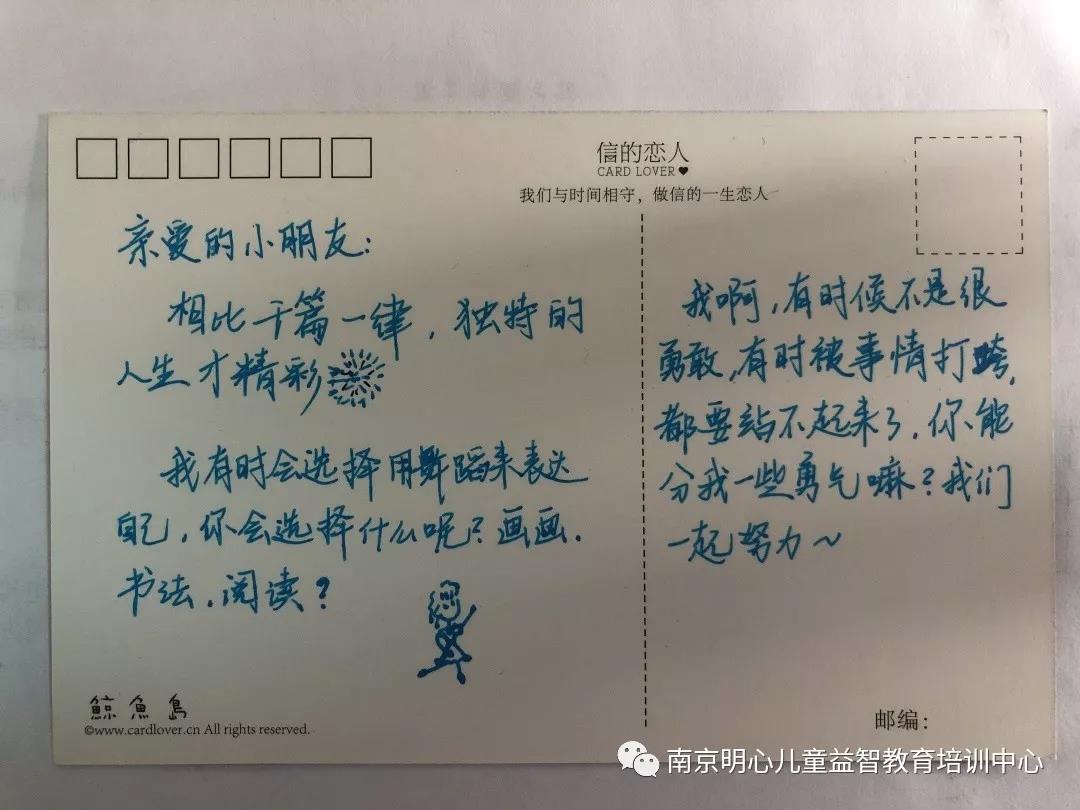 信的恋人
CARD LOVER♥
我们与时间相守，做信的一生恋人
亲爱的小朋友：
相比千篇一律，独特的
人生才精彩
我有时会选择用舞蹈来表达
自己，你会选择什么呢？画画.
书法.阅读？
我啊，有时候不是很
勇敢，有时被事情打垮，
都要站不起来了．你能
分我一些勇气嘛？我们
一起努力～
鲸魚島
©www.cardlover.cn All rights reserved.
邮编：
南京明心儿童益智教育培训中心